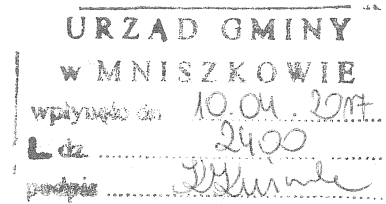 URZĄD GMINY
w MNISZKOWIE
wpłynęło dn 10.04.2017
L. dz. 2400
podpis